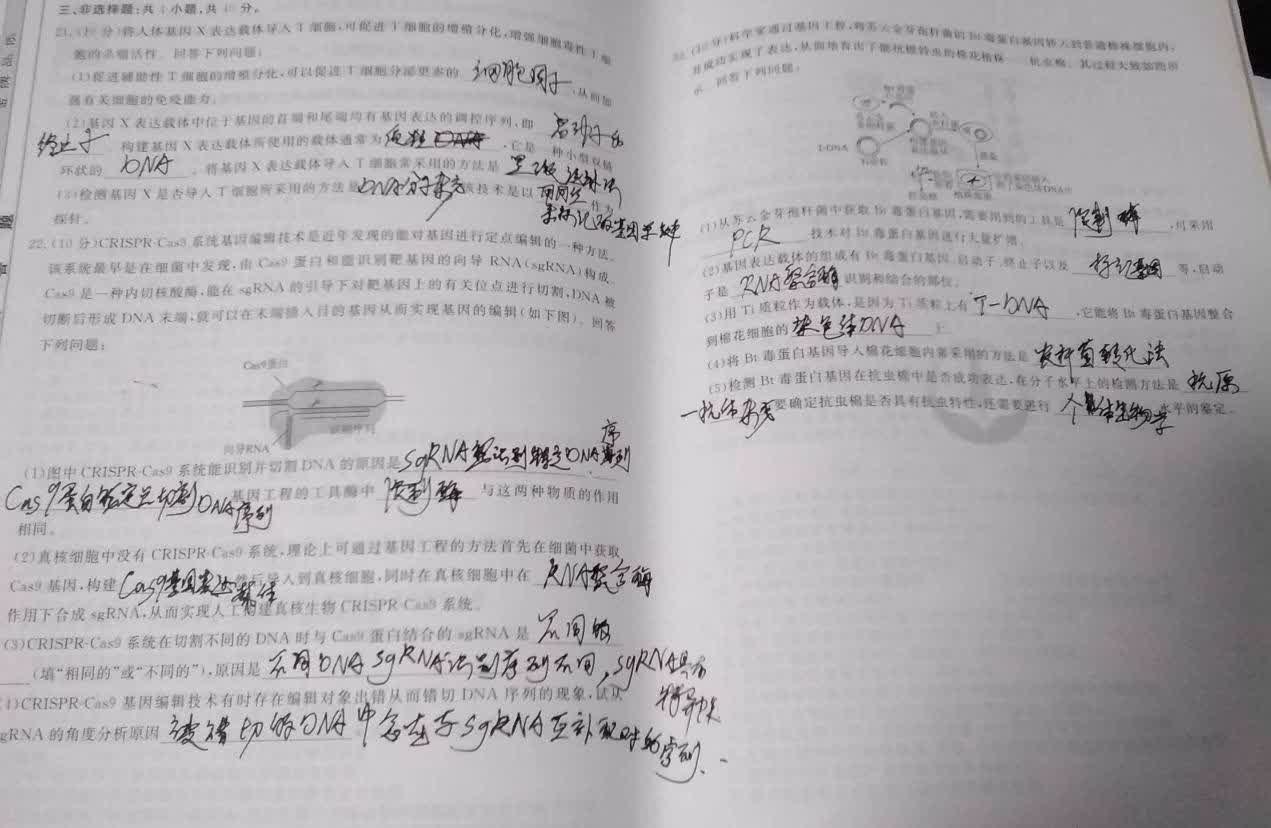 三、非选择题:共 小题,共 分。
21.(10 分)将人体基因 X 表达载体导入 T 细胞,可促进 T 细胞的增殖分化,增强细胞毒性 T 细
胞的杀瘤活性。回答下列问题:
(1)促进辅助性 T 细胞的增殖分化,可以促进 T 细胞分泌更多的 细胞因子 ,从而加
强有关细胞的免疫能力。
(2)基因 X 表达载体中位于基因的首端和尾端均有基因表达的调控序列,即 启动子和
终止子 构建基因 X 表达载体所使用的载体通常为 质粒 ,它是一种小型双链
环状的 DNA 。将基因 X 表达载体导入 T 细胞常采用的方法是 显微注射法
(3)检测基因 X 是否导入 T 细胞所采用的方法是 DNA分子杂交 该技术是以 用同位 作为
素标记的基因单链
探针。
22.(10 分)CRISPR-Cas9 系统基因编辑技术是近年发现的能对基因进行定点编辑的一种方法。
该系统最早是在细菌中发现,由 Cas9 蛋白和能识别靶基因的向导 RNA(sgRNA)构成。
Cas9 是一种内切核酸酶,能在 sgRNA 的引导下对靶基因上的有关位点进行切割,DNA 被
切断后形成 DNA 末端,就可以在末端插入目的基因从而实现基因的编辑(如下图)。回答
下列问题:
Cas9蛋白
向导RNA
(1)图中 CRISPR-Cas9 系统能识别并切割 DNA 的原因是 sgRNA能识别特定DNA序列
Cas9蛋白能定点切割DNA序列 基因工程的工具酶中 限制酶 与这两种物质的作用
相同。
(2)真核细胞中没有 CRISPR-Cas9 系统,理论上可通过基因工程的方法首先在细菌中获取
Cas9 基因,构建 Cas9基因表达载体 然后导入到真核细胞,同时在真核细胞中在 RNA聚合酶
作用下合成 sgRNA,从而实现人工构建真核生物 CRISPR-Cas9 系统。
(3)CRISPR-Cas9 系统在切割不同的 DNA 时与 Cas9 蛋白结合的 sgRNA 是 不同的
(填“相同的”或“不同的”),原因是 不同DNA sgRNA识别序列不同,sgRNA具有
特异性
(4)CRISPR-Cas9 基因编辑技术有时存在编辑对象出错从而错切 DNA 序列的现象,试从
gRNA 的角度分析原因 被错切的DNA中存在与sgRNA互补配对的序列.
(10 分)科学家通过基因工程,将苏云金芽孢杆菌的 Bt 毒蛋白基因转入到普通棉株细胞内,
并成功实现了表达,从而培育出了能抗棉铃虫的棉花植株——抗虫棉。其过程大致如图所
示。回答下列问题:
T-DNA
(1)从苏云金芽孢杆菌中获取 Bt 毒蛋白基因,需要用到的工具是 限制酶 ,可采用
PCR 技术对 Bt 毒蛋白基因进行大量扩增。
(2)基因表达载体的组成有 Bt 毒蛋白基因、启动子、终止子以及 标记基因 等,启动
子是 RNA聚合酶 识别和结合的部位。
(3)用 Ti 质粒作为载体,是因为 Ti 质粒上有 T-DNA ,它能将 Bt 毒蛋白基因整合
到棉花细胞的 染色体DNA 上。
(4)将 Bt 毒蛋白基因导入棉花细胞内常采用的方法是 农杆菌转化法
(5)检测 Bt 毒蛋白基因在抗虫棉中是否成功表达,在分子水平上的检测方法是 抗原
—抗体杂交 要确定抗虫棉是否具有抗虫特性,还需要进行 个体生物学 水平的鉴定。